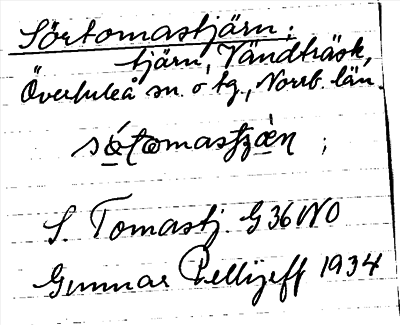 Sörtomastjärn;
tjärn, Vändträsk,
Överluleå sn. o tg., Norrb. län.
sótomastȷæn ;
S. Tomastj. G36NO
Gunnar Pellijeff 1934